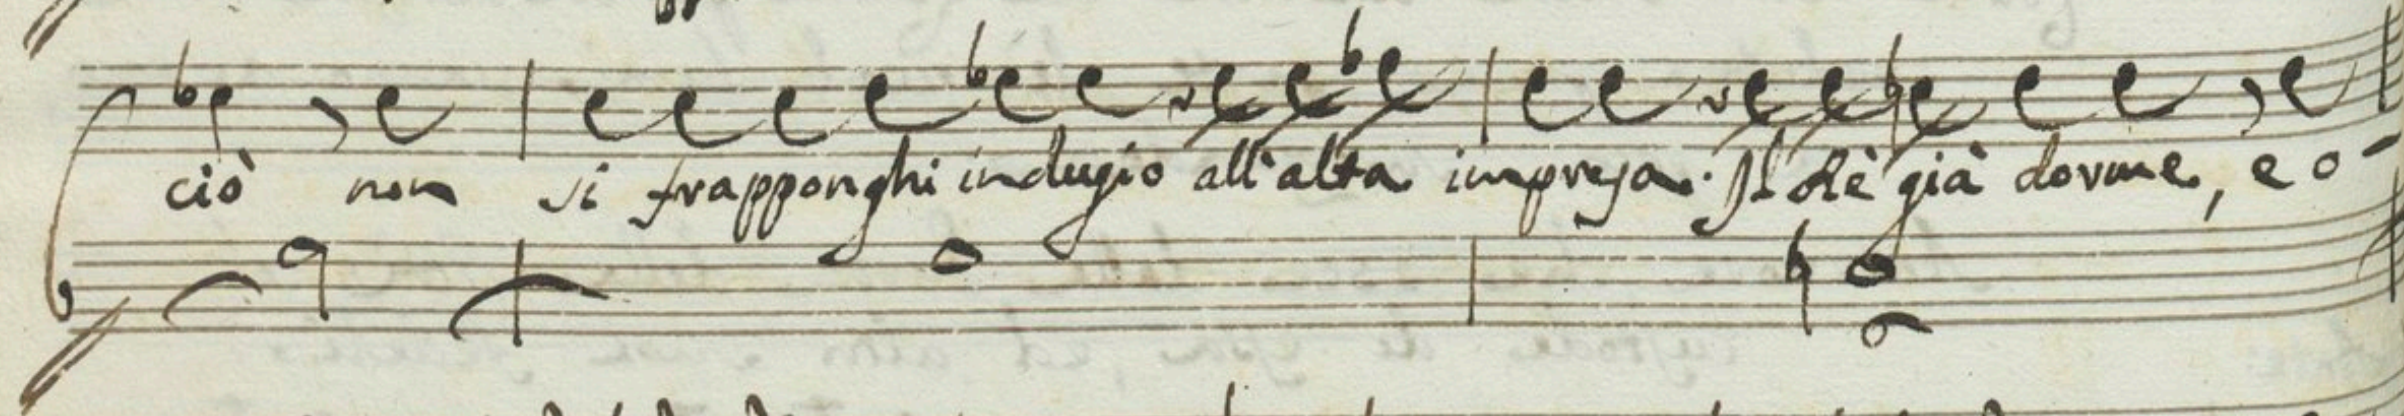 ciò non si frapponghi indugio all'alta impresa. Il Rè già dorme, e o-